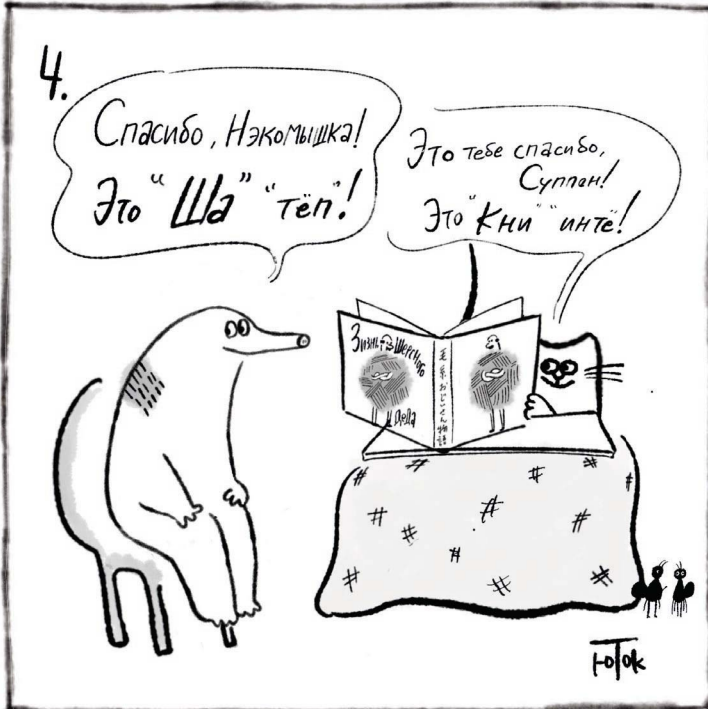 4.
Спасибо, Нэкомышка!
Это "Ша" "тёп"!
Это тебе спасибо,
Суппан!
Это "Кни" "интё!
Зизнь Шерсяого
Деда
毛糸おじいさん物語
ЮТок